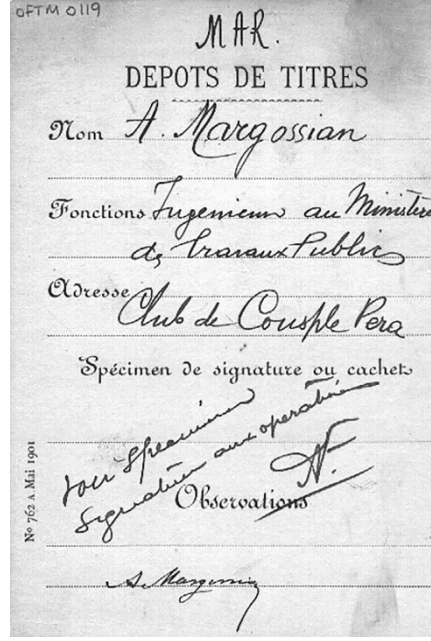 OFTM 0119
MAR.
DEPOTS DE TITRES
Nom A. Margossian
Fonctions Ingenieur au Ministère
de Travaux Public
Adresse
Club de Cousple Pera
Spécimen de signature ou cachet
voir specimen
signature aux operation
Observations
Nº 762 A. Mai 1901